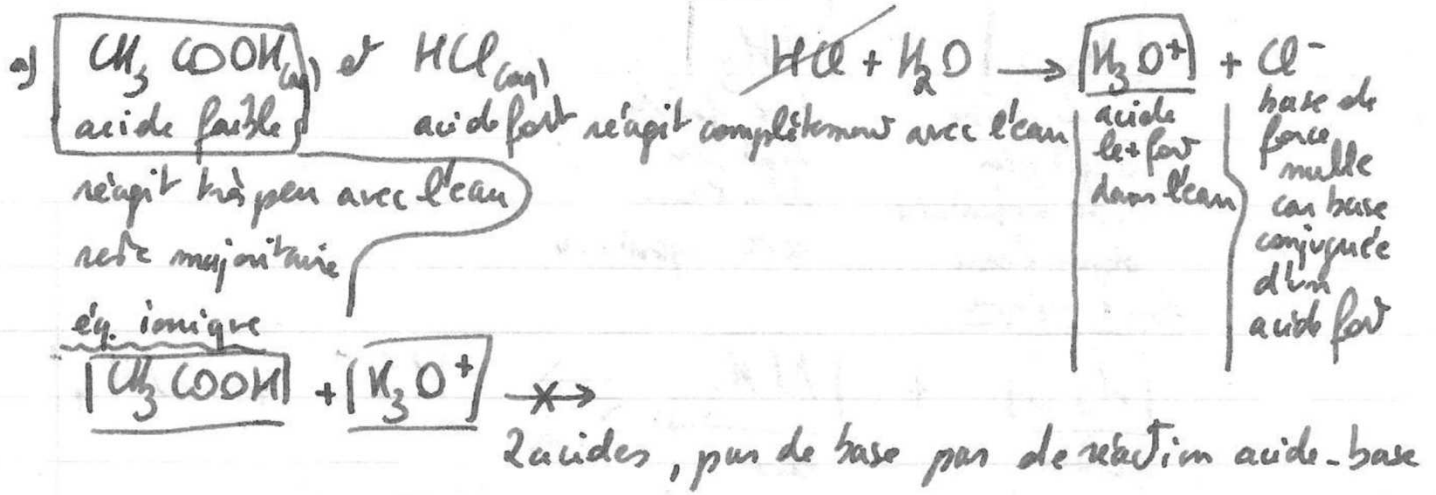 a) CH3 COOH(aq) et HCl(aq) HCl + H2O → H3O+ + Cl-
acide faible acide fort réagit complètement avec l'eau
acide
le + fort
dans l'eau
base de
force
nulle
car base
conjuguée
d'un
acide fort
réagit très peu avec l'eau
reste majoritaire
éq. ionique
CH3 COOH + H3O+ →
2 acides, pas de base pas de réaction acide-base